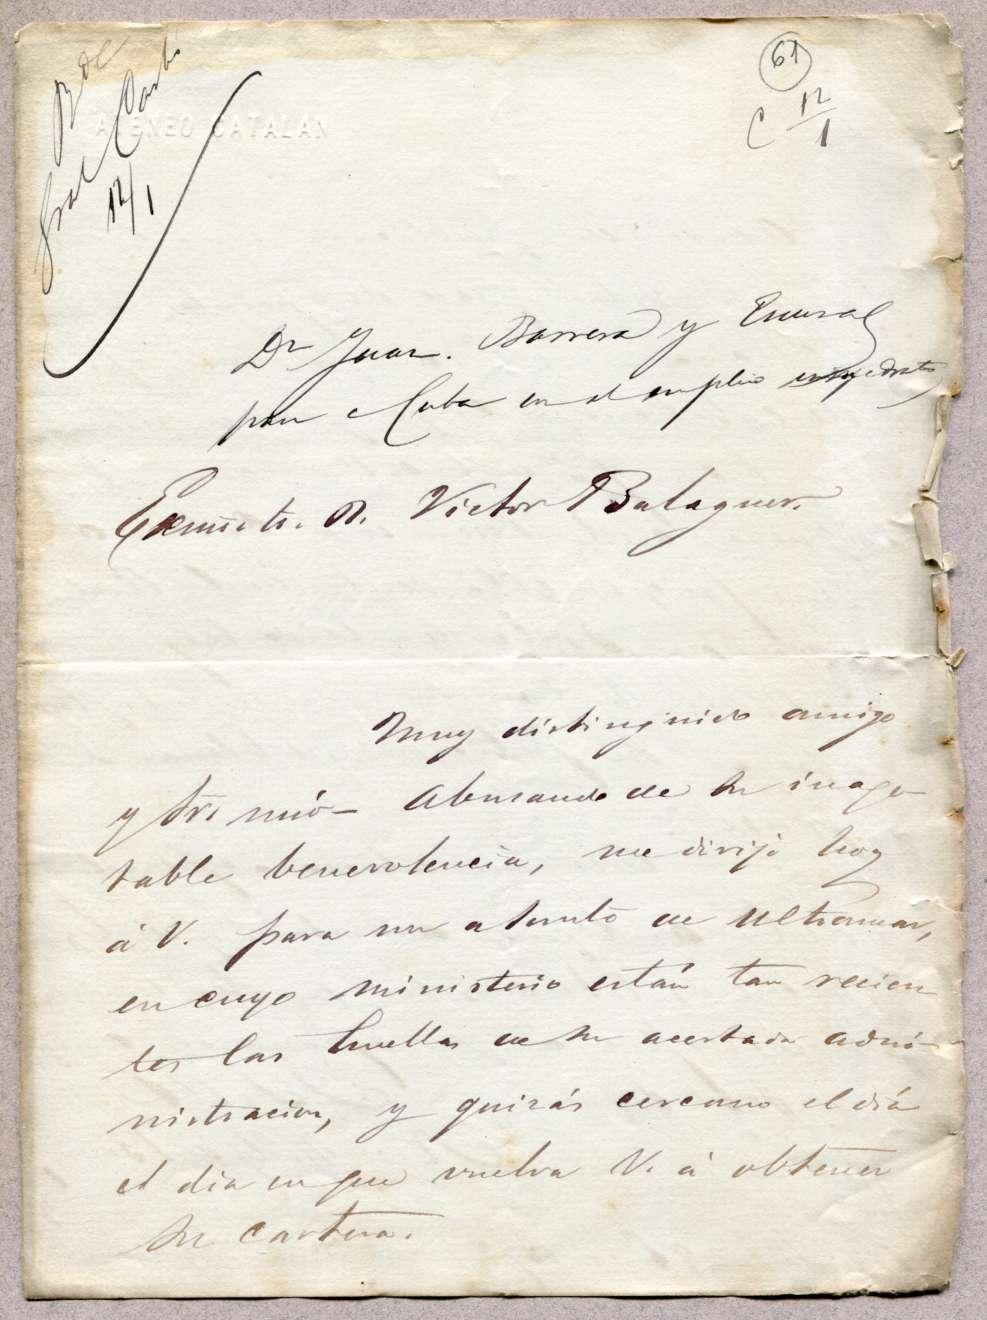 61
C 12/1
ATENEO CATALAN
12/1
Dn Juan. Barrera y
para Cuba en el empleo
Exmo. Sr. D. Victor Balaguer.
Muy distinguido amigo
y Sr. mio— Abusando de su inago-
table benevolencia, me dirijo hoy
á V. para un asunto de Ultramar,
en cuyo ministerio están tan recien
tes las huellas de su acertada admi-
nistracion, y quizás cercano el dia
el dia en que vuelva V. á obtener
su cartera.